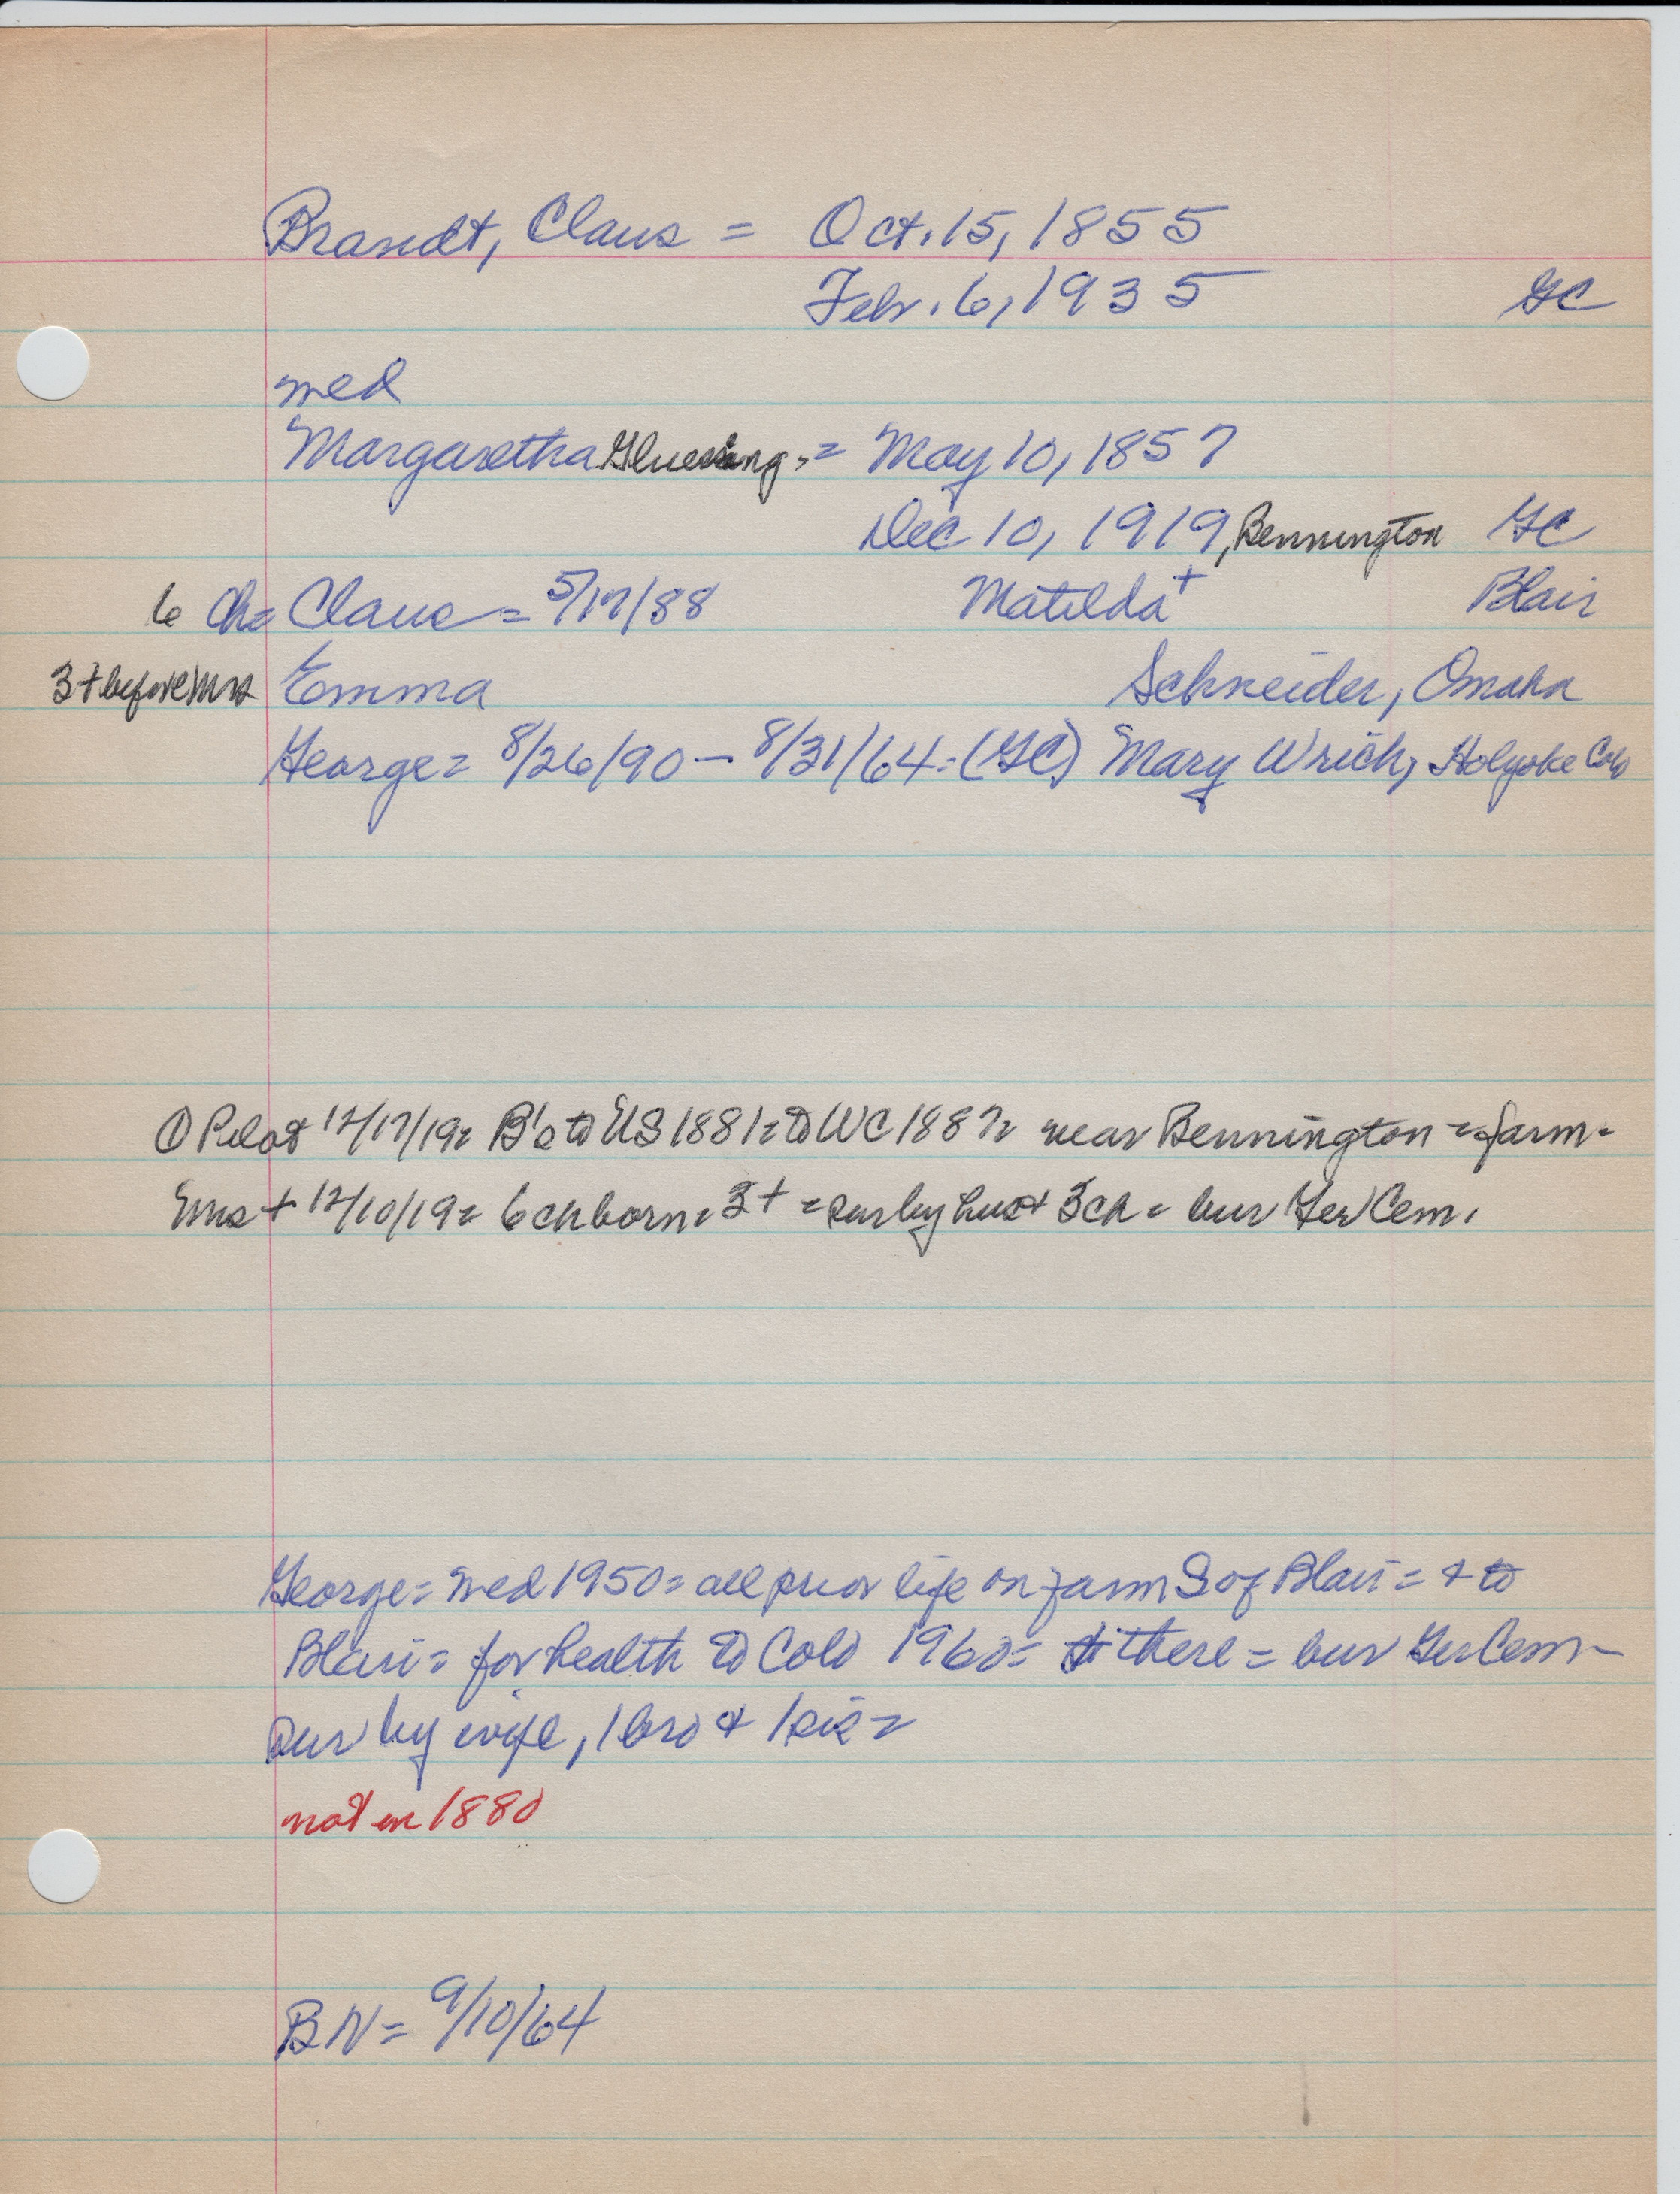 Brandt, Claus = Oct. 15, 1855
Febr. 6, 1935 GC
med
Margaretha Gluesing = May 10, 1857
Dec 10, 1919, Bennington GC
6 Ch = Claus = 5/17/88 Matilda + Blair
3 + before Mrs Emma Schneider, Omaha
George = 8/26/90 – 8/31/64 = (GC) Mary Wrich, Holyoke Colo
① Pilot 12/17/19 = B's to US 1881 = to WC 1887 = near Bennington = farm =
Mrs + 12/10/19 = 6 ch born = 3 + = sur by hus + 3 ch = bur Ger Cem.
George = med 1950 = all prior life on farm S of Blair = + to
Blair = for health to Colo 1960 = + there = bur Ger Cem –
sur by wife, 1 bro + 1 sis =
not in 1880
BN = 9/10/64